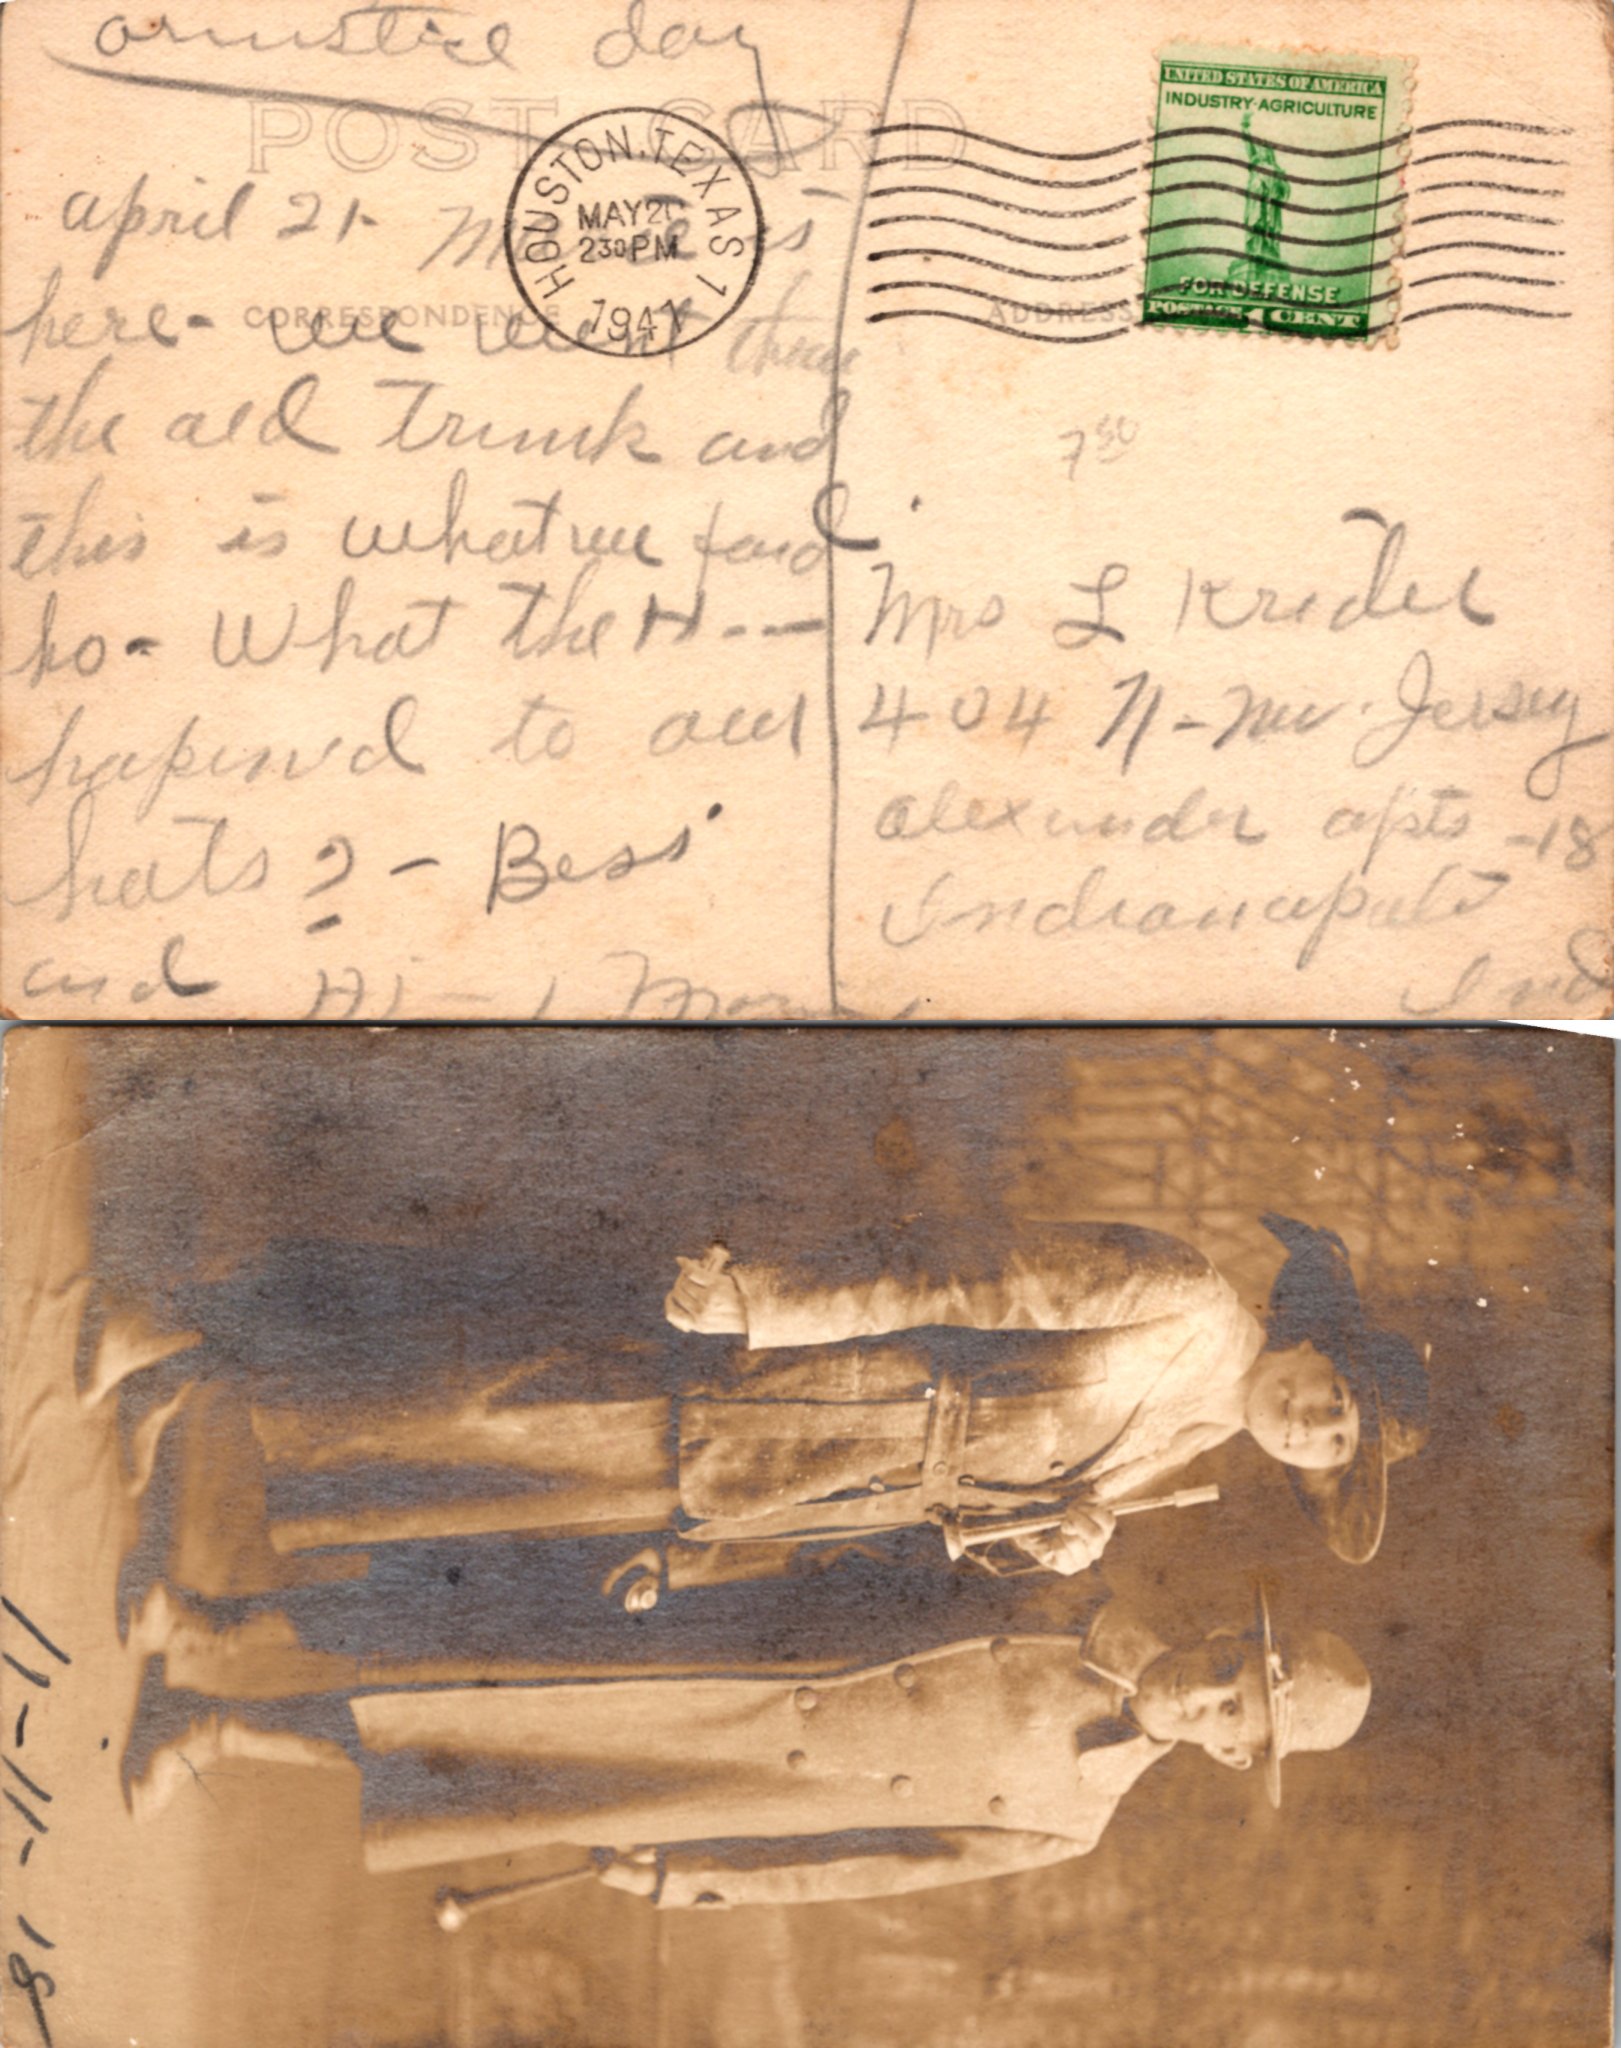 armistice day
POST CARD
HOUSTON, TEXAS 1
MAY 20
2 30 PM
1941
UNITED STATES OF AMERICA
INDUSTRY · AGRICULTURE
FOR DEFENSE
POSTAGE 1 CENT
CORRESPONDENCE
ADDRESS
april 21 - is
here - we went thru
the old Trunk and
this is what we found
ho - What the H---
hapened to our
hats ? - Bess
and
7 50
Mrs L Krider
404 N - New Jersey
alexander apts - 18
Indianapolis
Ind
11-11-18